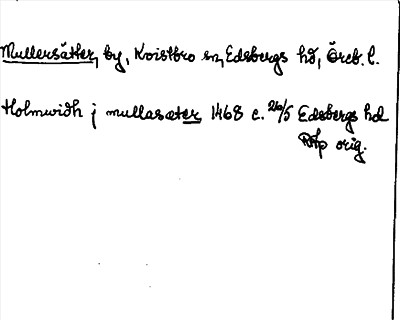 Mullersätter, by, Kvistbro sn, Edsbergs hd, Öreb. l.
Holmwidh j mullasæter 1468 c. 26/5 Edsbergs hd
RAp orig.